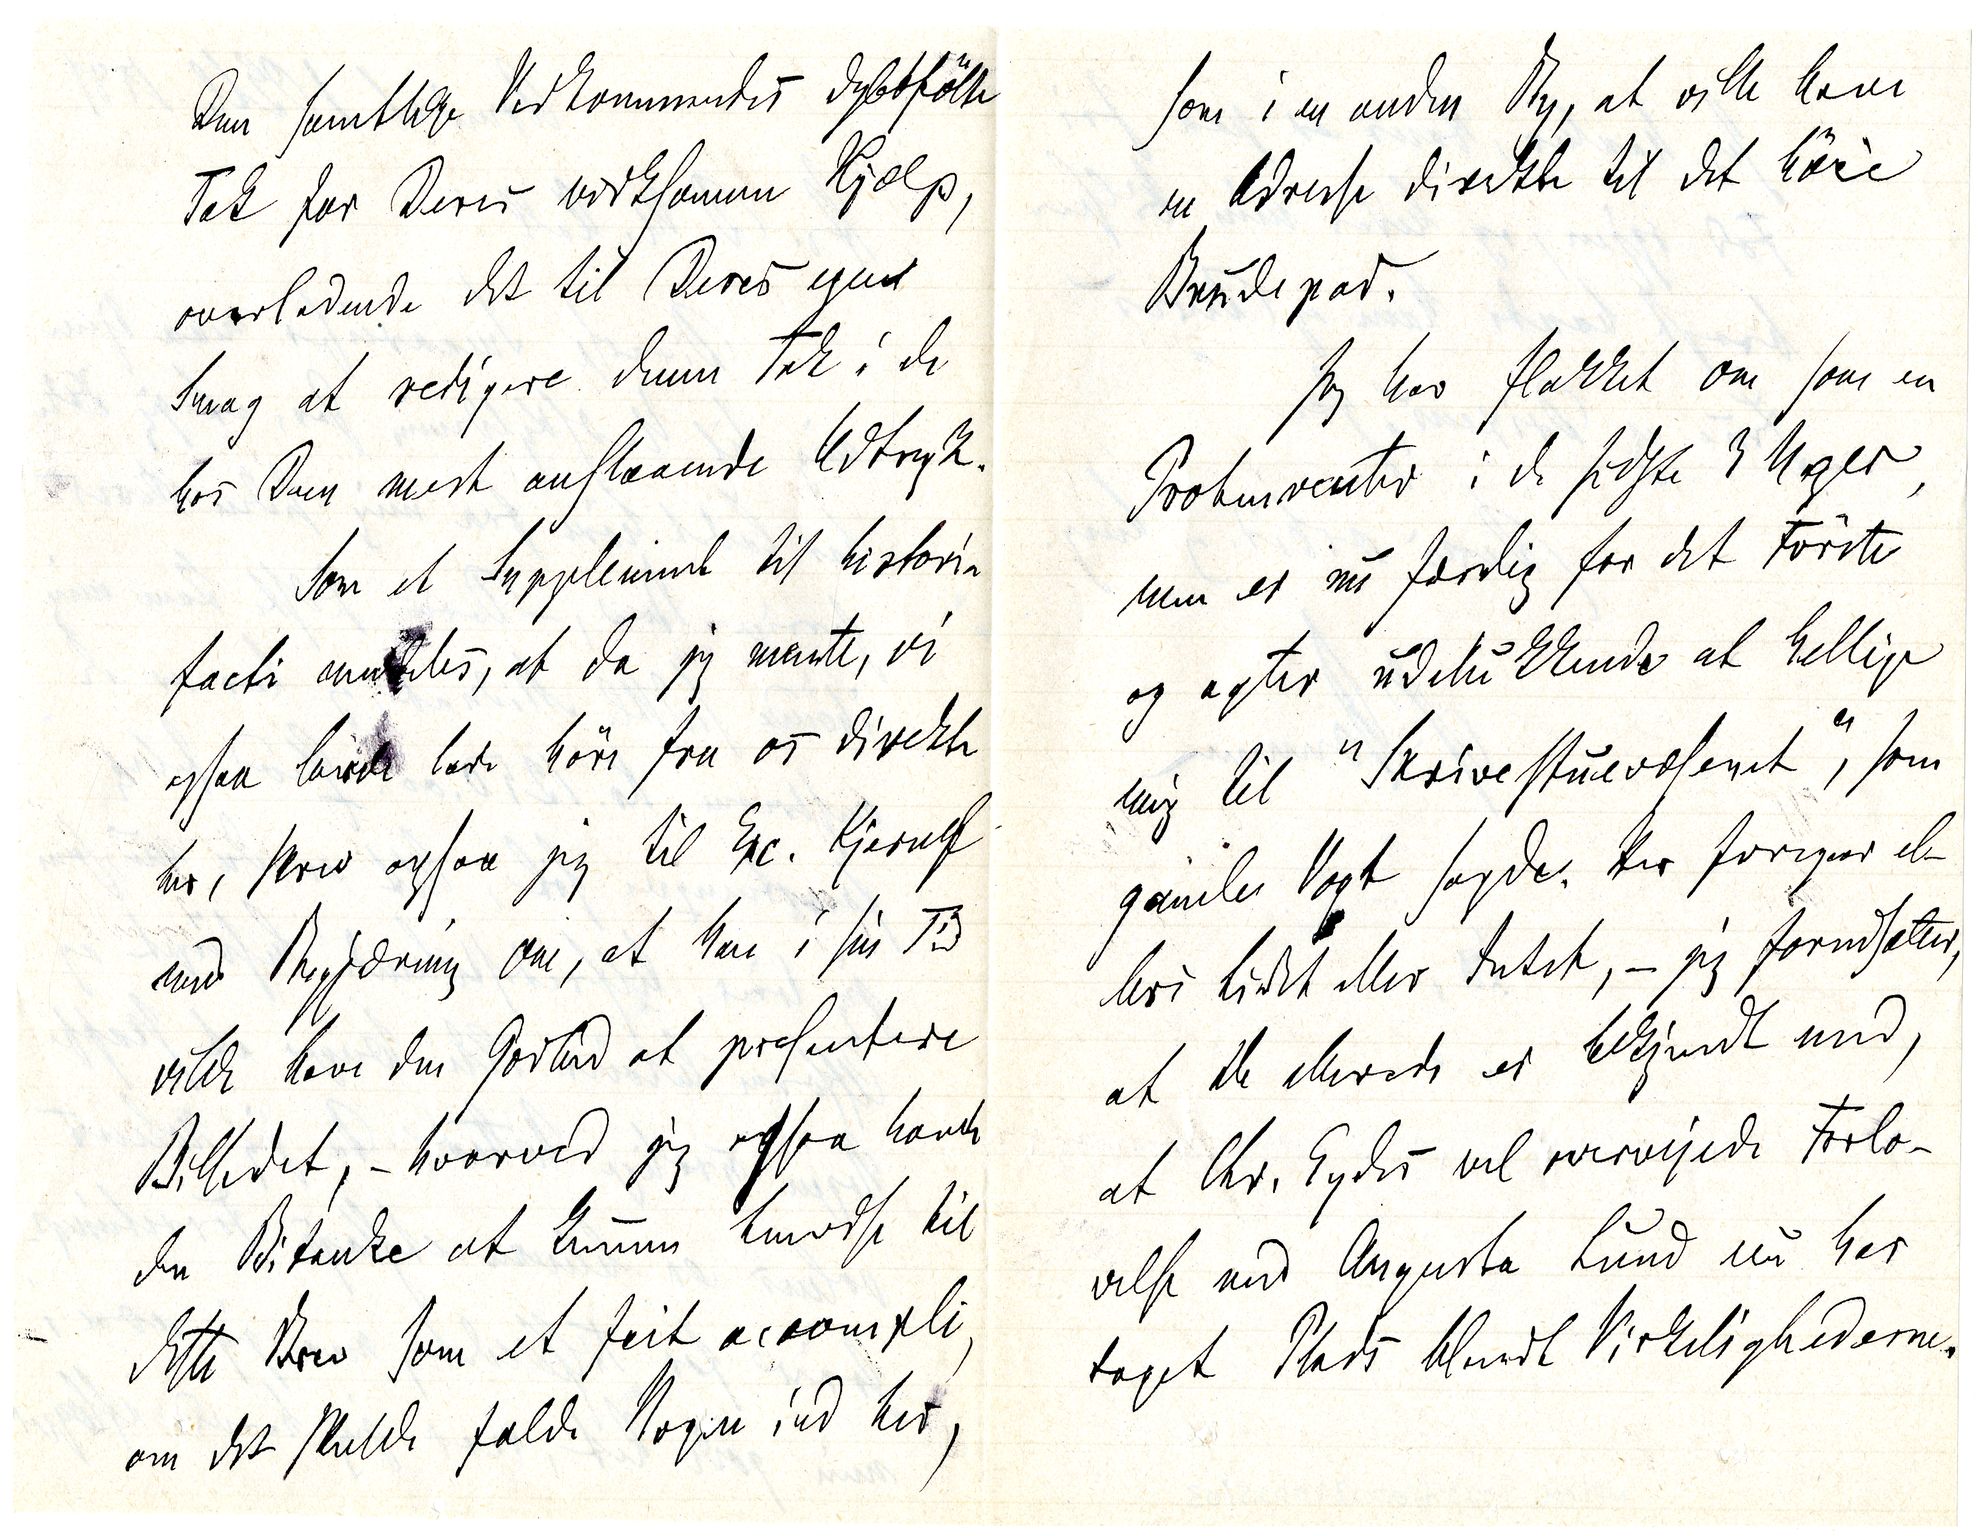 Dem samtlige Vedkommendes dybtfölte
Tak for Deres virksomme Hjælp,
overladende det til Deres egen
Smag at redigere denne Tak i de
hos Dem mest anslaaende Udtryk.
Som et Supplement til historia
facti meldes, at da jeg mente, vi
ogsaa burde lade höre fra os direkte
her, skrev ogsaa jeg til Exc. Kjerulf
med Begjæring om, at han i sin Tid
vilde have den Godhed at præsentere
Billedet, – hvorved jeg ogsaa havde
den Bitanke at kunne henvise til
dette Brev som et fait accompli,
om det skulde falde Nogen ind her,
som i en anden By, at ville have
en Adresse direkte til det höie
Brudepar.
Jeg har flakket om som en
Probenreuter i de sidste 3 Uger,
men er nu færdig for det Förste
og agter udelukkende at hellige
mig til "Skrivestuevæsenet", som
gamle Vogt sagde. Her foregaar el-
lers lidet eller Intet, – jeg forudsætter,
at De allerede er bekjendt med,
at Chr. Eydes vel overveiede Forlo-
velse med Augusta Lund nu har
taget Plads blandt Virkelighederne.